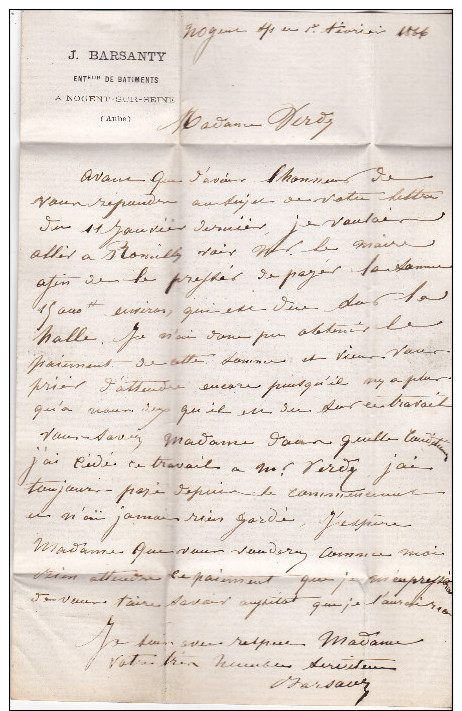 J. BARSANTY
ENTEUR DE BATIMENTS
A NOGENT-SUR-SEINE
(Aube)
Nogent s/ er février 1866
Madame Verdy
Avant que d'avoir l'honneur de
vous répondre au sujet de votre lettre
du 11 Janvier dernier, je voulais
aller a Romilly voir Mr le maire
afin de le presser de payer la somme
environ, qui est due sur la
halle. Je n'ai donc pu obtenir le
paiement de cette somme et viens vous
prier d'attendre encore puisqu'il n'y a plus
qu'a nous qu'il est du sur ce travail
Vous savez Madame dans quelle condition
j'ai cédé ce travail a Mr Verdy j'ai
toujours payé depuis le commencement
et n'ai jamais rien gardé. J'espère
Madame que vous voudrez comme moi
bien attendre ce paiement que je m'empresserai
de vous faire savoir aussitot que je l'aurai
Je suis avec respect Madame
Votre très humble serviteur
Barsanty